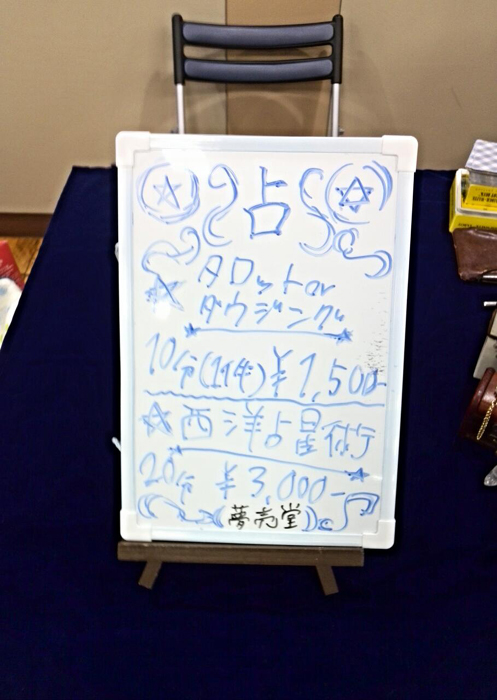 占
タロット or
ダウジング
10分(1件) ¥1,500-
西洋占星術
20分 ¥3,000-
夢売堂